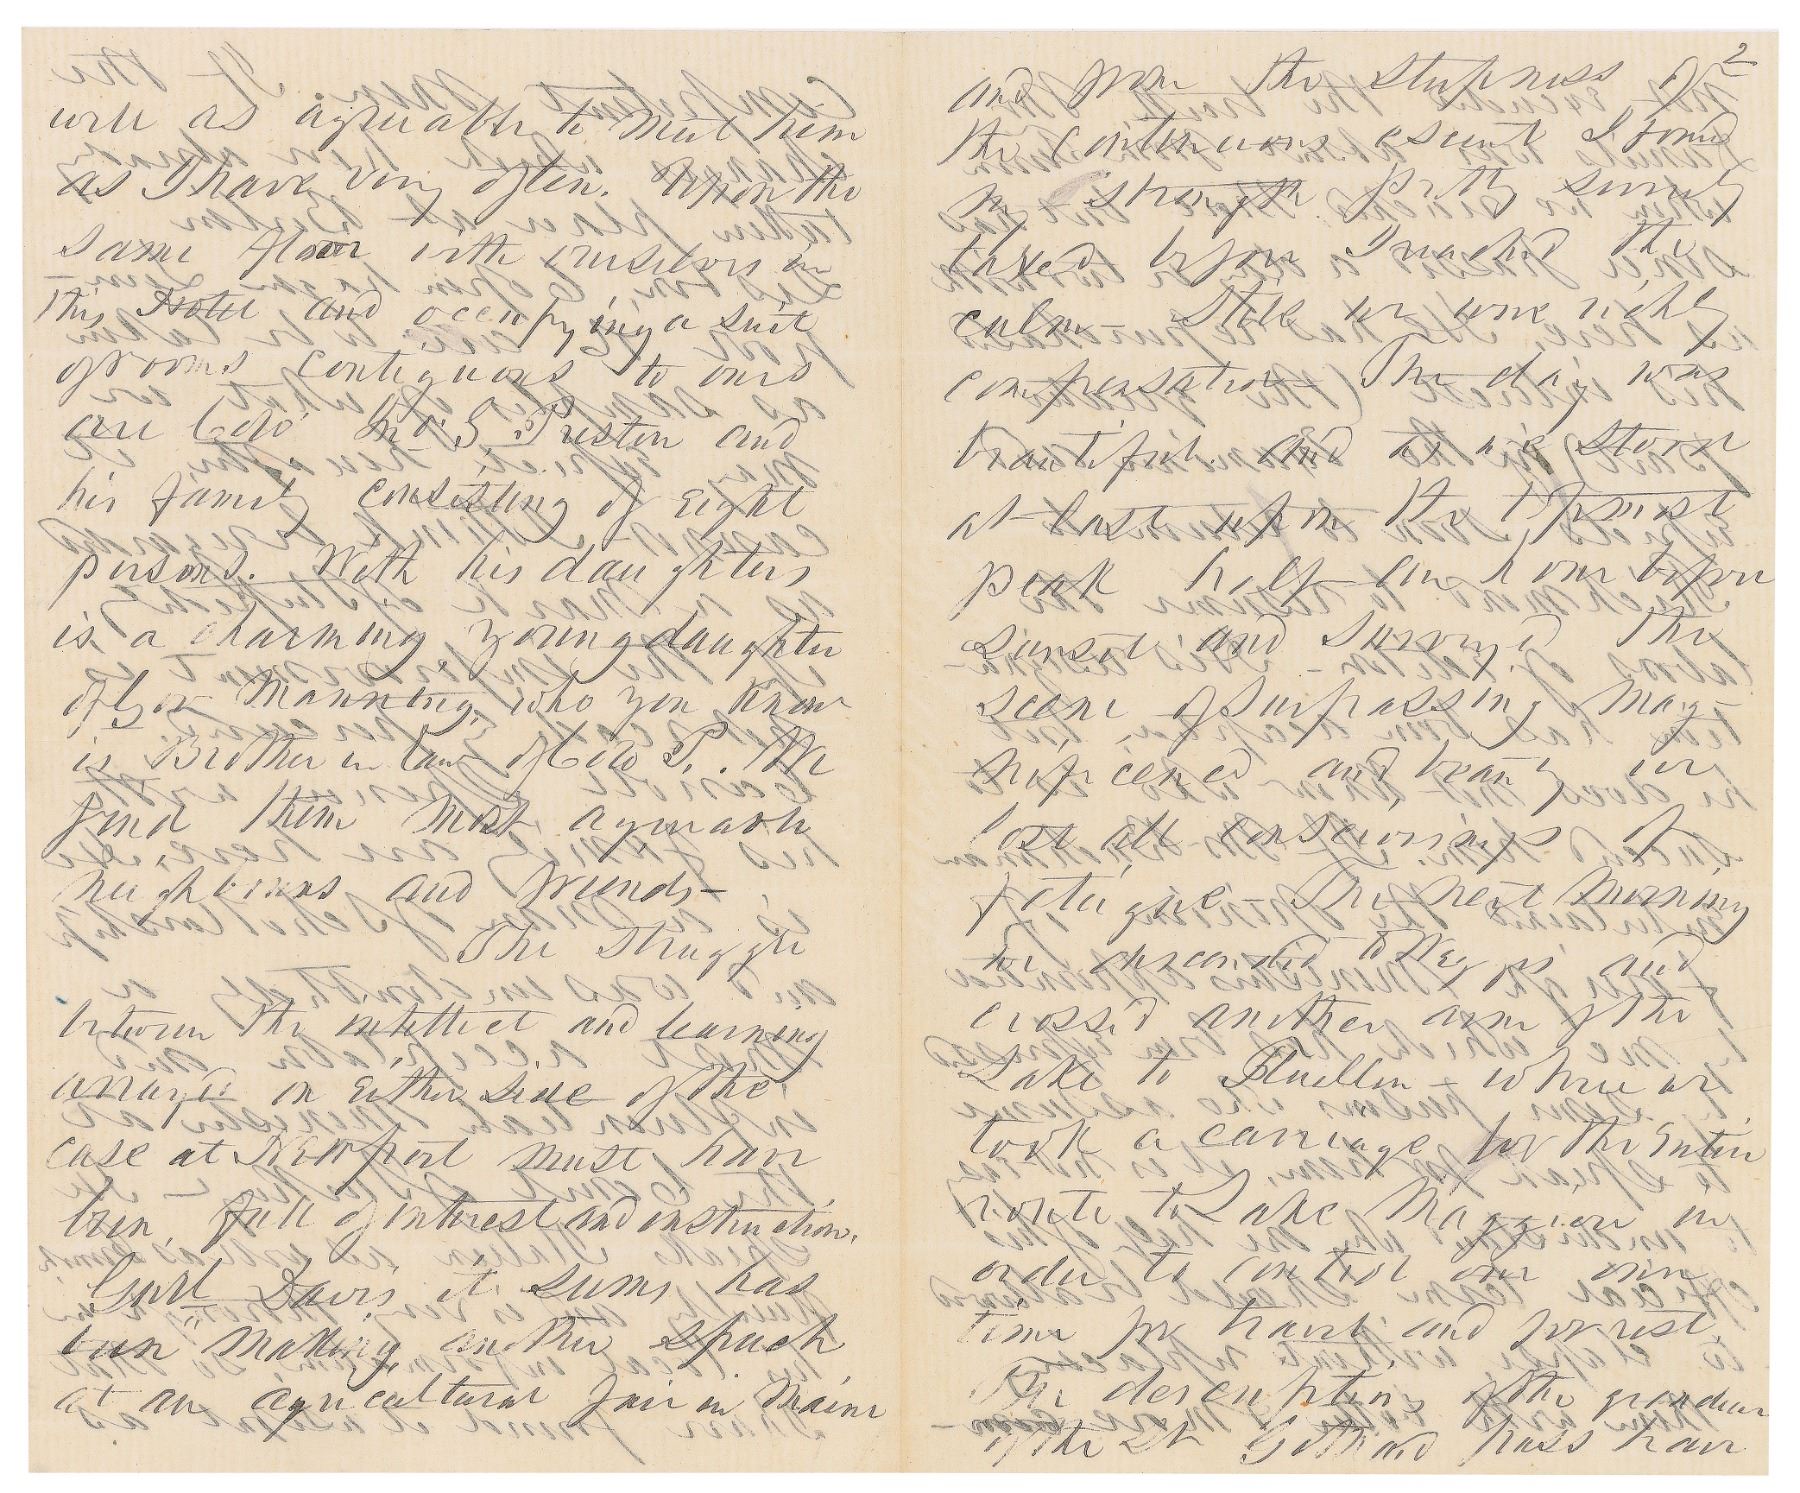 well as agreeable to meet him
as I have very often. Upon the
same floor with ourselves in
this Hotel and occupying a suit
of rooms contiguous to ours
are Colo Jno. S. Preston and
his family consisting of eight
persons. With his daughters
is a charming young daughter
of Gov Manning, who you know
is Brother in law of Colo P. We
find them most agreeable
neighbours and friends—
The struggle
between the intellect and learning
arrayed on Either side of the
case at Newport must have
been, full of interest and instruction.
Davis it seems has
been "making" another speech
at an agricultural fair in Maine
2
and from the steepness of
the continuous ascent I found
my strength pretty surely
taxed before I reached the
culm. Still we were richly
compensated— The day was
beautiful. and as we stood
at last upon the topmost
peak half an hour before
sunset and surveyed the
scene of surpassing mag-
nificence and beauty we
lost all consciousness of
fatigue. The next morning
we descended to Weggis and
cross'd another arm of the
Lake to Fluellen — where we
took a carriage for the entire
route to Lake Maggiore in
order to control our own
time for travel and for rest.
The description of the grandeur
of the St Gothard pass have